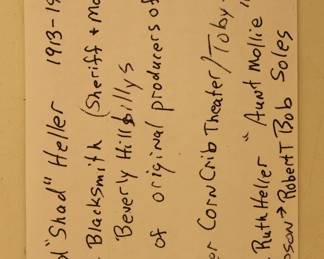 d "Shad" Heller 1913-19
Blacksmith (Sheriff + Mo
Beverly Hillbillys
of original producers of
or Corn Crib Theater/Toby
Ruth Heller "Aunt Mollie"
oson → Robert T Bob Soles